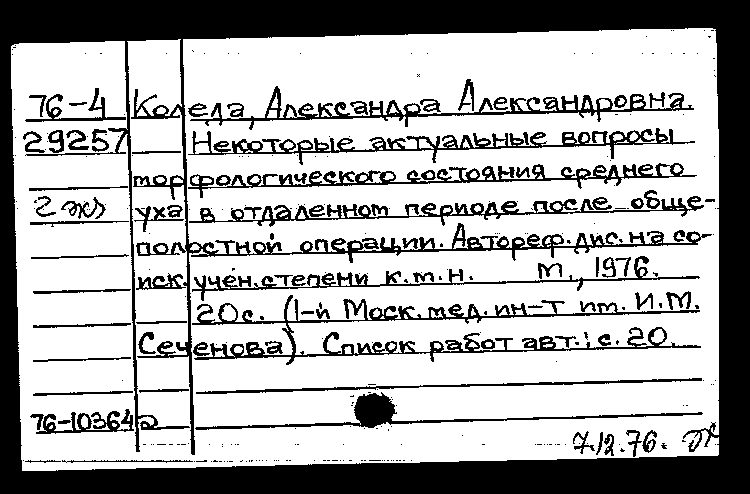 76-4 Коледа, Александра Александровна.
29257 Некоторые актуальные вопросы
морфологического состояния среднего
2 экз уха в отдаленном периоде после обще-
полостной операции. Автореф. дис. на со-
иск. учен. степени к.м.н. М., 1976.
20с. (1-й Моск. мед. ин-т им. И.М.
Сеченова). Список работ авт.: с. 20.
76-10364
7.12.76.